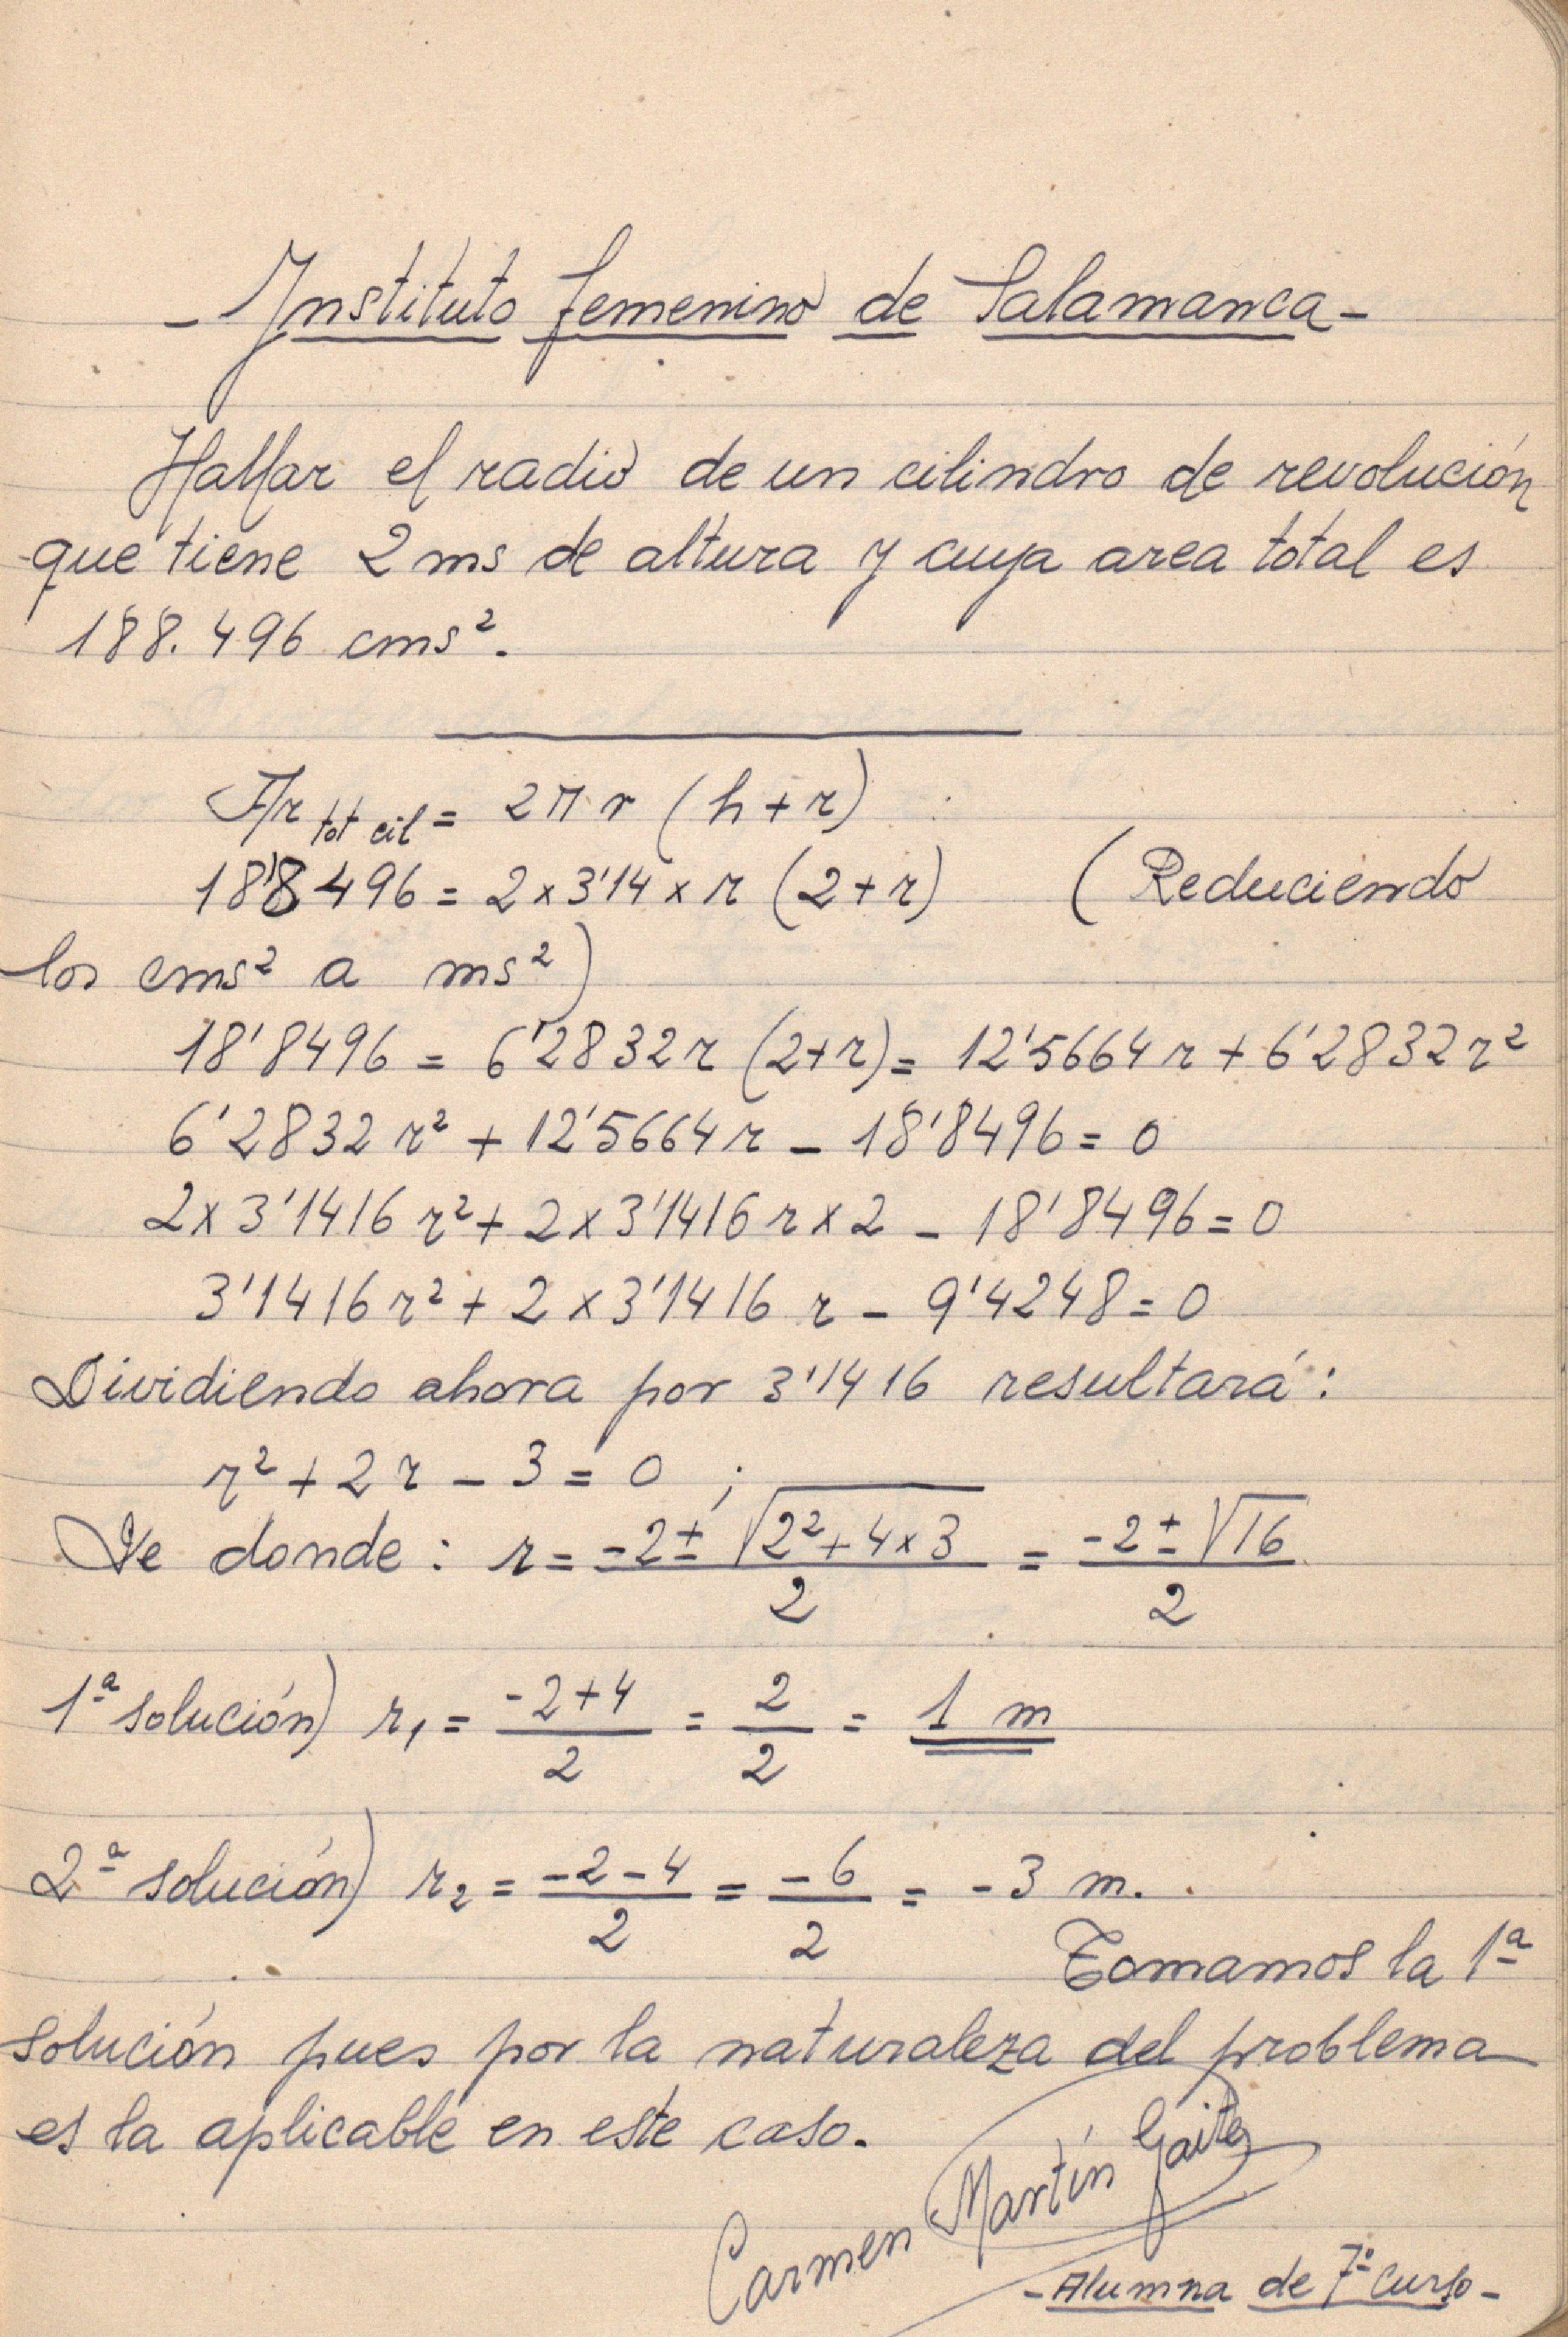 - Instituto femenino de Salamanca -
Hallar el radio de un cilindro de revolución
que tiene 2 ms de altura y cuya area total es
188.496 cms².
Ar tot cil = 2πr (h+r)
18'8496 = 2 x 3'14 x r (2+r) (Reduciendo
los cms² a ms²)
18'8496 = 6'2832 r (2+r) = 12'5664 r + 6'2832 r²
6'2832 r² + 12'5664 r - 18'8496 = 0
2 x 3'1416 r² + 2 x 3'1416 r x 2 - 18'8496 = 0
3'1416 r² + 2 x 3'1416 r - 9'4248 = 0
Dividiendo ahora por 3'1416 resultará:
r² + 2r - 3 = 0 ;
De donde: r = (-2 ± √(2² + 4 x 3)) / 2 = (-2 ± √16) / 2
1ª solución) r₁ = (-2+4) / 2 = 2 / 2 = 1 m
2ª solución) r₂ = (-2-4) / 2 = -6 / 2 = -3 m.
Tomamos la 1ª
solución pues por la naturaleza del problema
es la aplicable en este caso.
Carmen Martín Gaite
- Alumna de 7º curso -